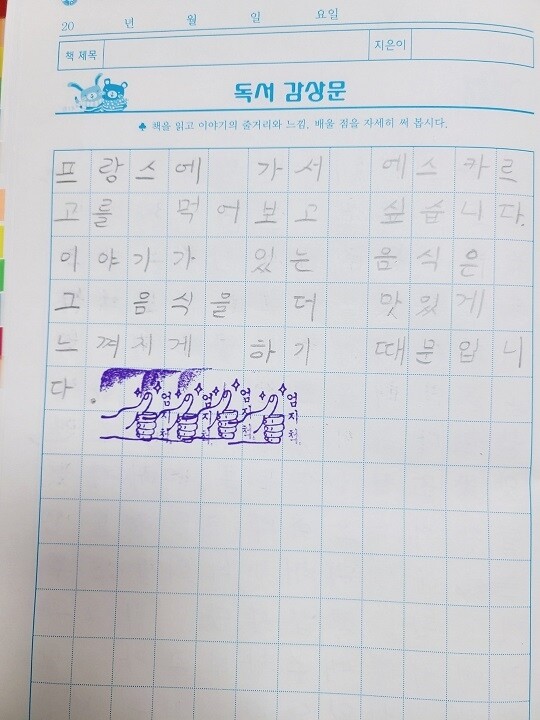 20 년 월 일 요일
책 제목 지은이
독서 감상문
♣ 책을 읽고 이야기의 줄거리와 느낌, 배울 점을 자세히 써 봅시다.
프랑스에 가서 에스카르
고를 먹어보고 싶습니다.
이야가가 있는 음식은
그 음식을 더 맛있게
느껴지게 하기 때문입니
다.
엄지척 엄지척 엄지척 엄지척